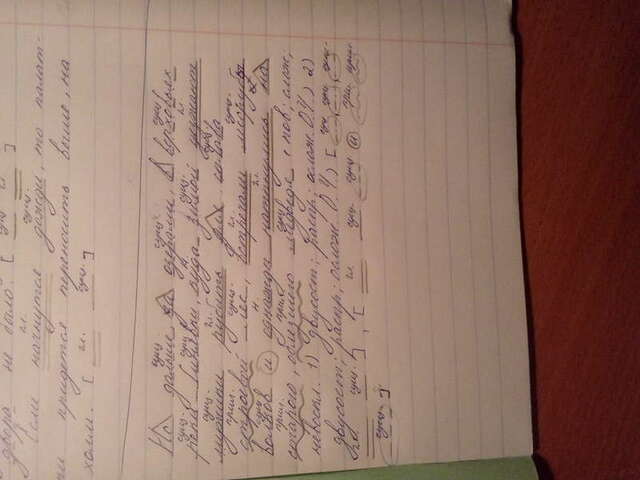 двора не было. [ сущ. гл. ]
Если начнутся дожди, то палат-
ки придется переносить выше, на
холм. [ гл. сущ. ]
Но дальше, за озерами, в верховьях
реки Синявки, куда зимой уезжают
мужики рубить для сплава
строевой лес, встречали лесорубы
волков и однажды наткнулись на
старого, облезлого медведя. (пов; слож,
невоскл. 1) двусост; распр; ослож. О.Ч.) 2)
двусост; распр; ослож. О.Ч.) [ сущ. сущ. сущ.
гл. сущ. ] , [ гл. сущ. сущ. и при. при.
сущ. ]